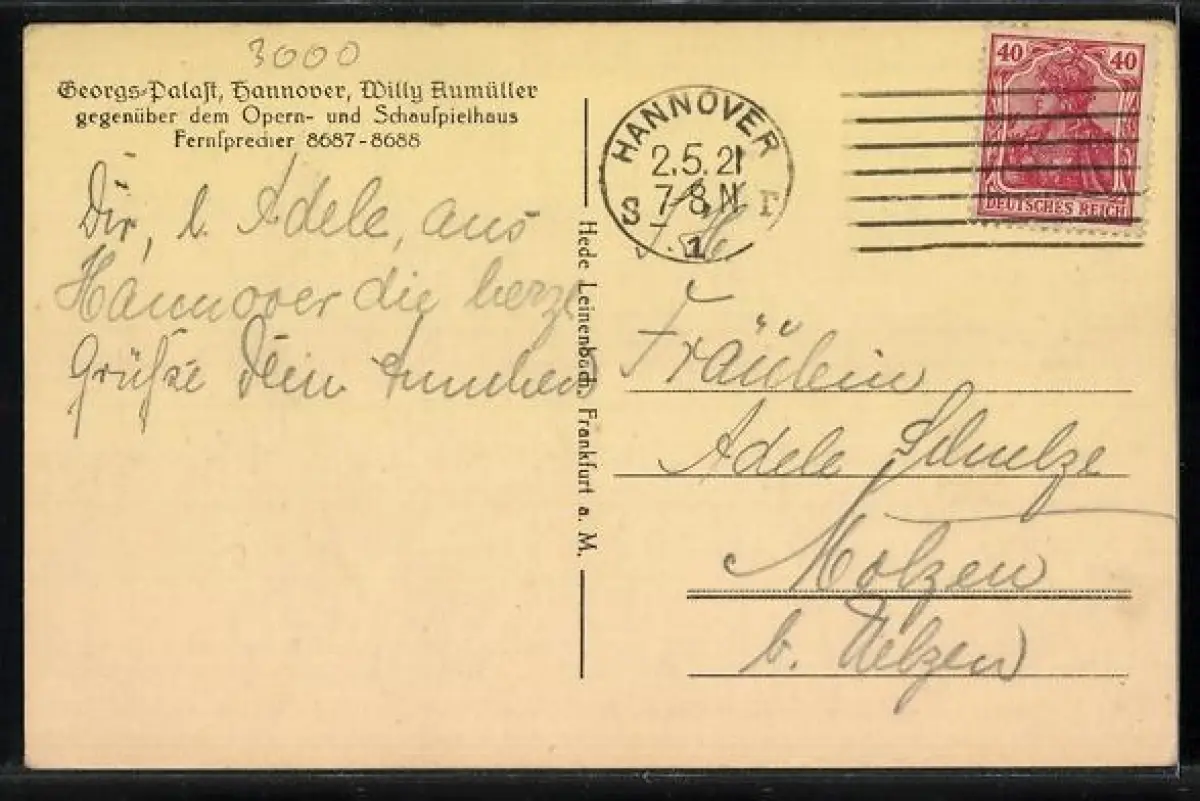 3000
Georgs-Palast, Hannover, Willy Aumüller
gegenüber dem Opern- und Schauspielhaus
Fernsprecher 8687-8688
Dir, l. Adele, aus
Hannover die herzl
Grüße Dein
Hede Leinenbach, Frankfurt a. M.
HANNOVER
2.5.21
7-8 N
S 1
40 40
DEUTSCHES REICH
Fräulein
Adele Schulze
Molzen
b. Uelzen